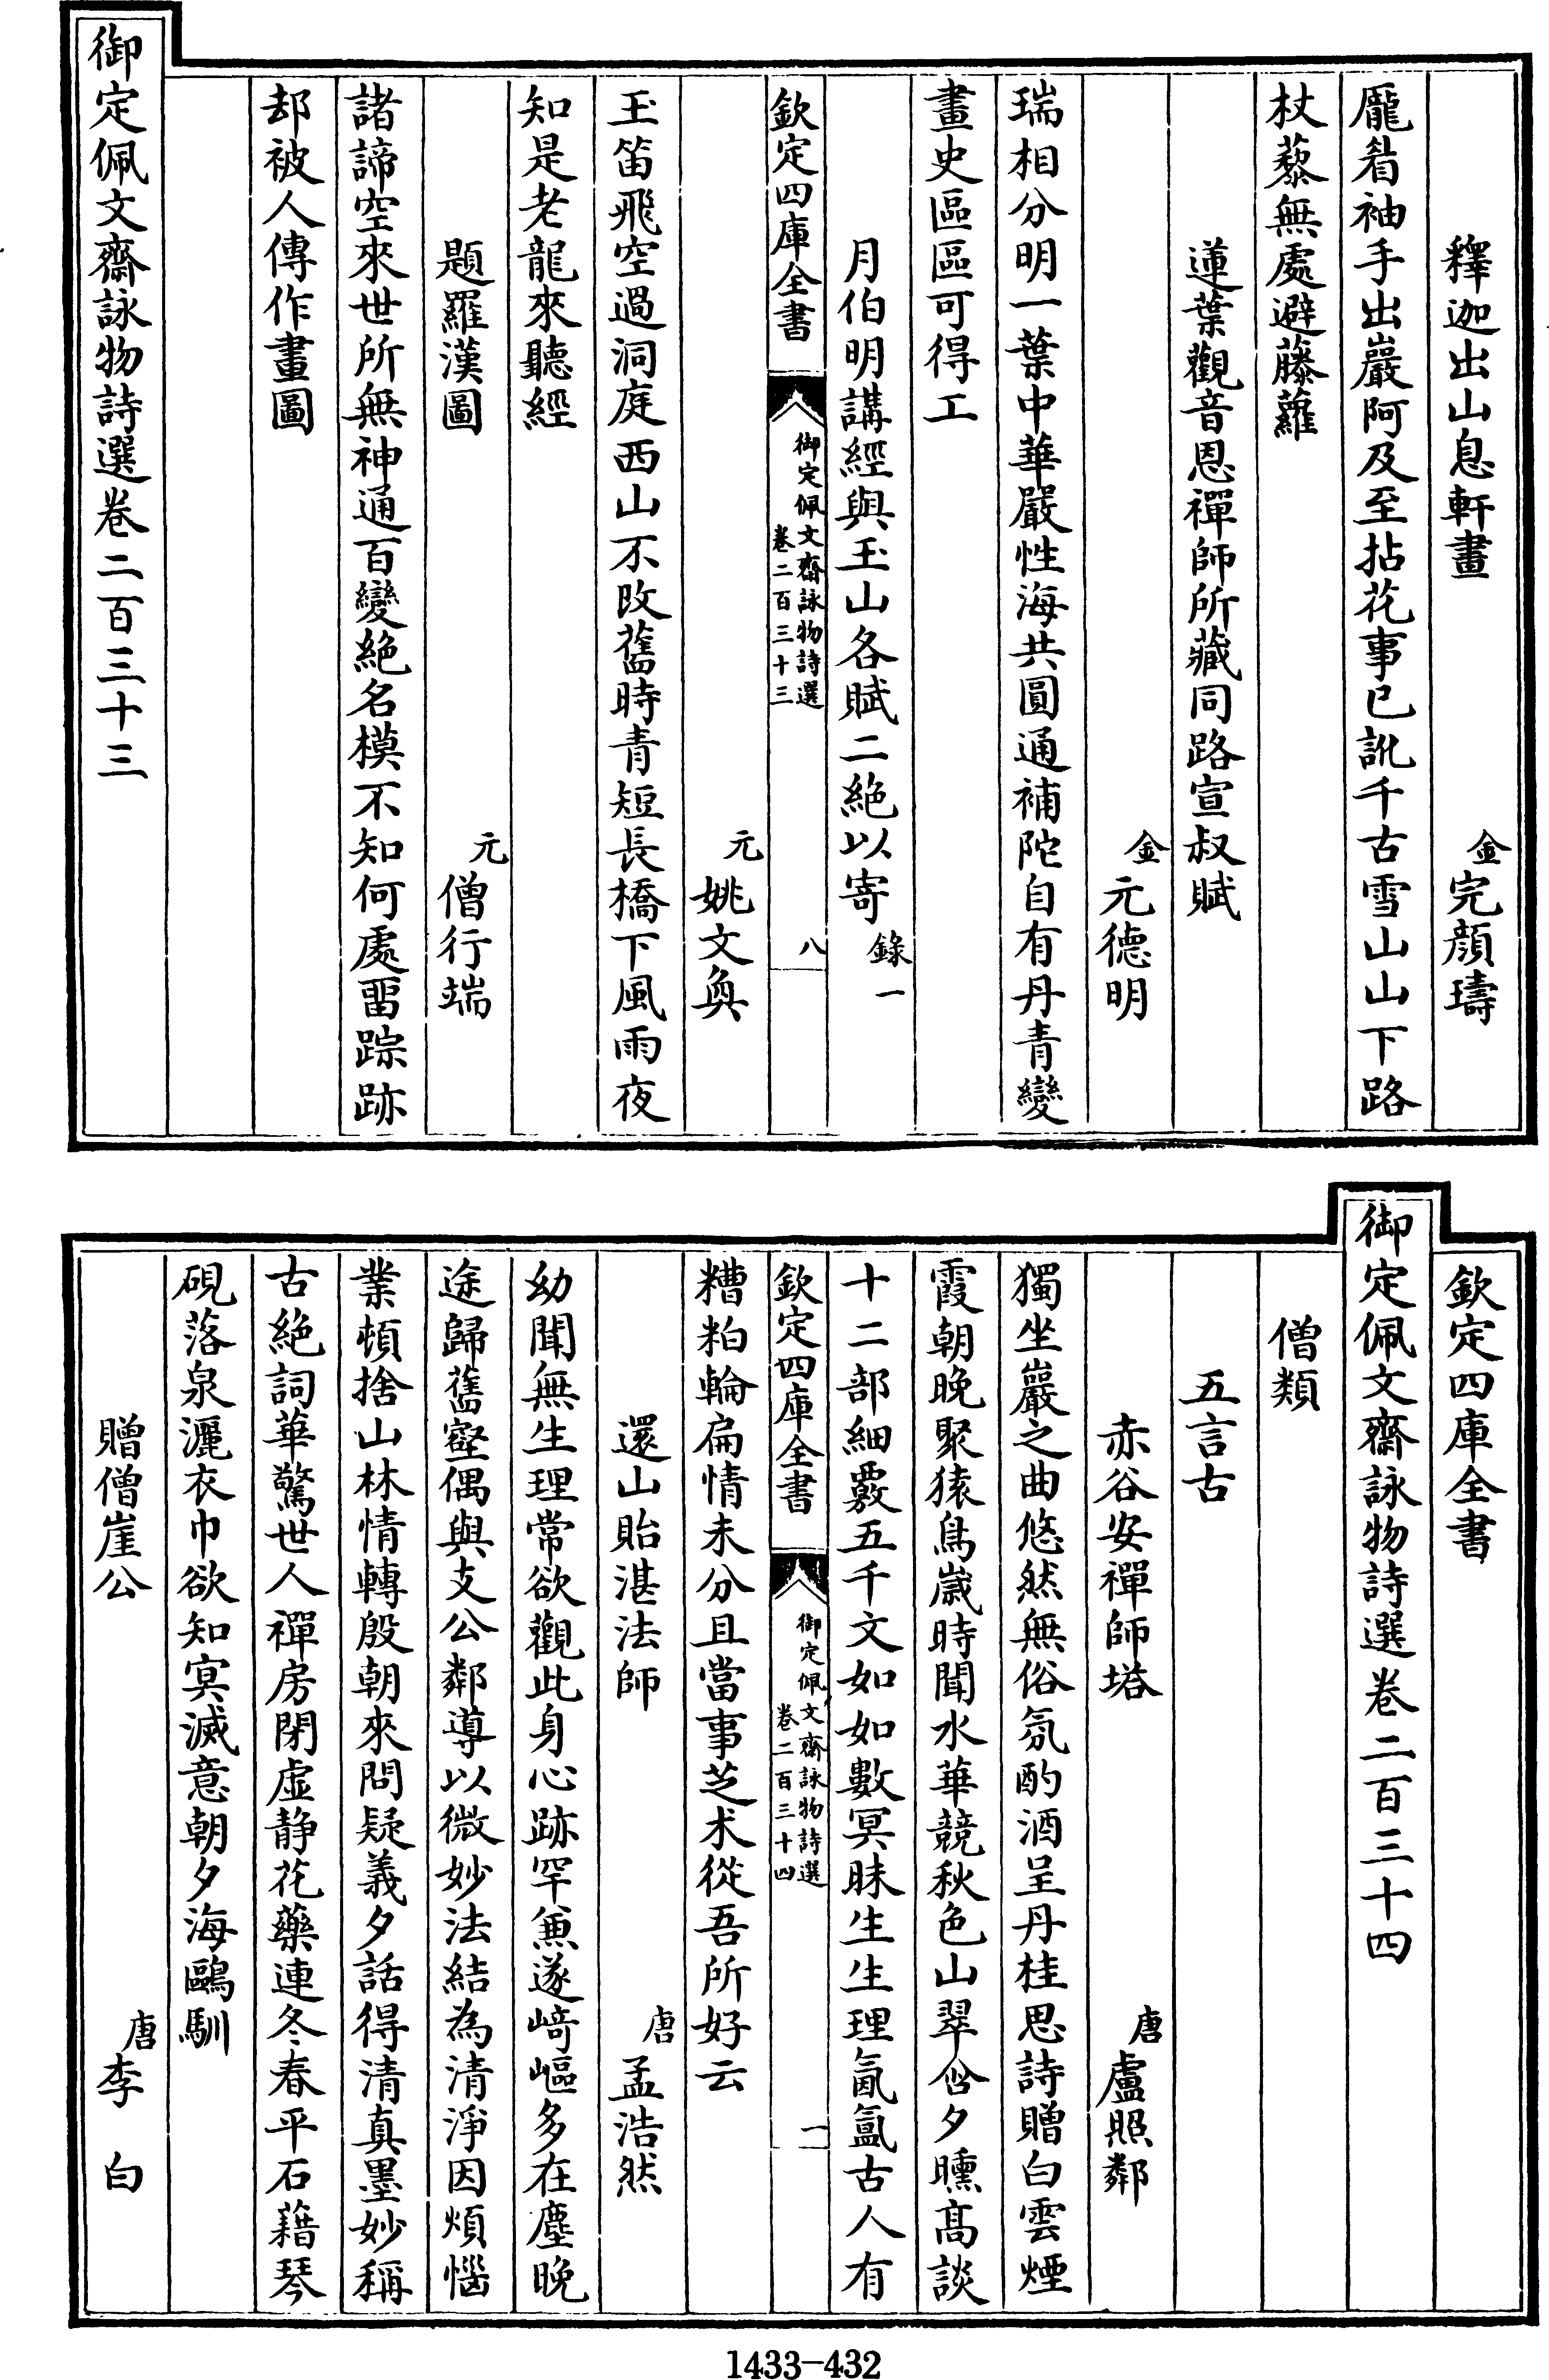 釋迦出山息軒畫
金完顔璹
龎眉袖手出巖阿及至拈花事已訛千古雪山山下路
杖藜無處避藤蘿
蓮葉觀音恩禪師所藏同路宣叔賦
金元德明
瑞相分明一葉中華嚴性海共圓通補陀自有丹青變
畫史區區可得工
月伯明講經與玉山各賦二絶以寄錄一
欽定四庫全書
御定佩文齋詠物詩選
卷二百三十三
八
元姚文奐
玉笛飛空過洞庭西山不改舊時青短長橋下風雨夜
知是老龍來聽經
題羅漢圖
元僧行端
諸諦空來世所無神通百變絶名模不知何處畱踪跡
却被人傳作畫圖
御定佩文齋詠物詩選卷二百三十三
欽定四庫全書
御定佩文齋詠物詩選卷二百三十四
僧類
五言古
赤谷安禪師塔
唐盧照鄰
獨坐巖之曲悠然無俗氛酌酒呈丹桂思詩贈白雲煙
霞朝晚聚猿鳥嵗時聞水華競秋色山翠含夕曛髙談
十二部細覈五千文如如數冥昧生生理氤氲古人有
欽定四庫全書
御定佩文齋詠物詩選
卷二百三十四
一
糟粕輪扁情未分且當事芝术從吾所好云
還山貽湛法師
唐孟浩然
幼聞無生理常欲觀此身心跡罕兼遂﨑嶇多在塵晚
途歸舊壑偶與支公鄰導以微妙法結為清淨因煩惱
業頓捨山林情轉殷朝來問疑義夕話得清真墨妙稱
古絶詞華驚世人禪房閉虛静花藥連冬春平石藉琴
硯落泉灑衣巾欲知冥滅意朝夕海鷗馴
贈僧崖公
唐李白
1433-432